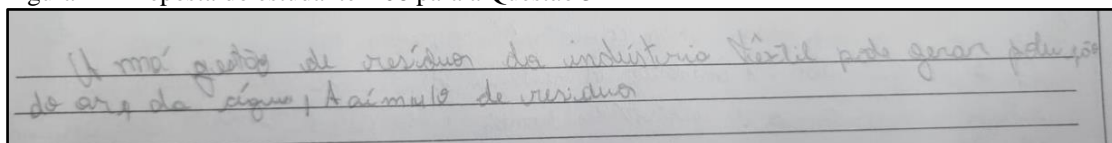 A má gestão de resíduos da indústria têxtil pode gerar poluição
do ar, da água, de resíduos